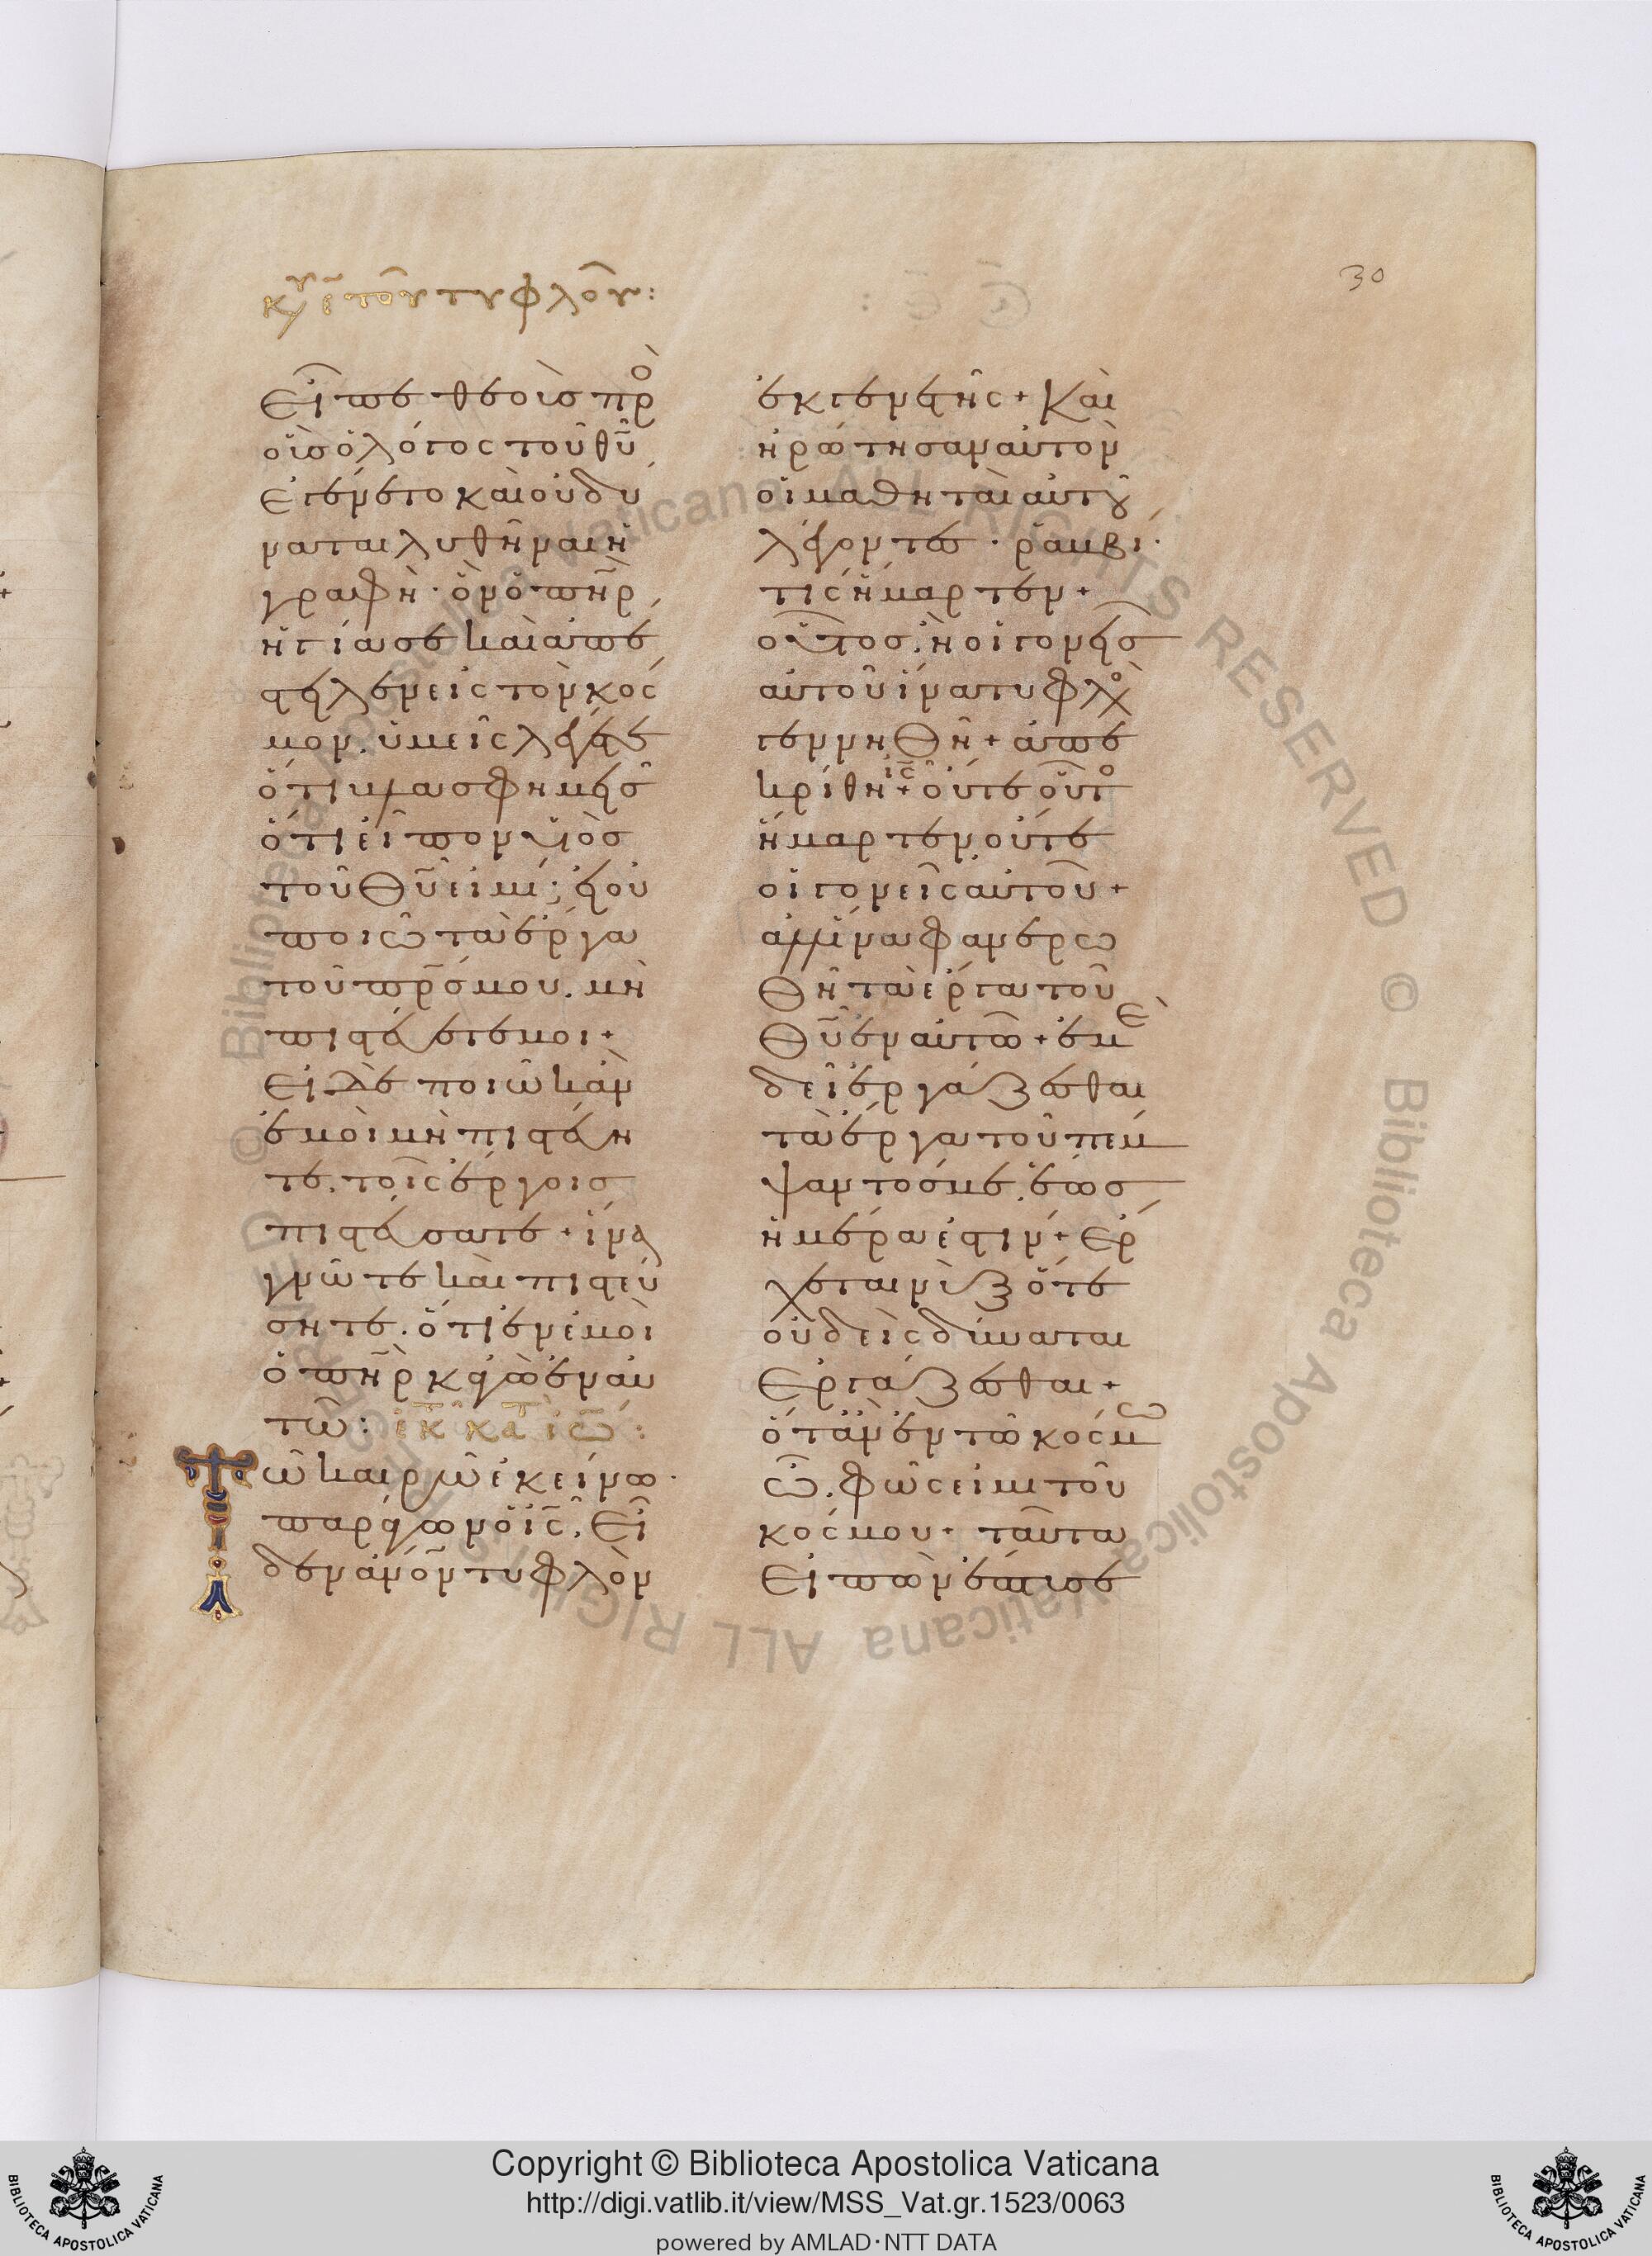 κυ ε του τυφλοῦ:
30
εἶπε θεοὺς πρὸ
οὓσ ὁ λόγος τοῦ θῦ
ἐγένετο καὶ οὐ δύ
ναται λυθῆναι ἡ
γραφὴ· ὃν ὁ πηρ
ἡγίασε καὶ ἀπέ
στειλεν εἰς τὸν κόσ
μον. ὑμεῖς λέγετε
ὅτι βλασφημεῖσ
ὅτι εἶπον υἱὸσ
τοῦ Θῦ εἰμι; εἰ οὐ
ποιῶ τὰ ἔργα
τοῦ πρσ μου. μὴ
πιστεύετέ μοι+
Εἰ δὲ ποιῶ κἂν
ἐμοὶ μὴ πιστεύη
τε. τοῖς ἔργοισ
πιστεύσατε+ ἵνα
γνῶτε καὶ πιστεύ
σητε. ὅτι ἐν ἐμοὶ
ὁ πηρ κἀγὼ ἐν αὐ
τῶ: ἐκ κατ ιω:
Τῶ καιρῶ ἐκείνω·
παράγων ὁ ις. εἶ
δεν ἄνον τυφλὸν
ἐκ γενετῆς+ Καὶ
ἠρώτησαν αὐτὸν
οἱ μαθηταὶ αὐτοῦ
λέγοντες· ῥαββί·
τίς ἥμαρτεν+
οὗτοσ. ἢ οἱ γονεῖσ
αὐτοῦ ἵνα τυφλὸ
γεννηθῆ+ ἀπε
κρίθη ις+ οὔτε οὗτο
ἥμαρτεν. οὔτε
οἱ γονεῖς αὐτοῦ+
ἀλλ ἵνα φανερω
θῆ τὰ ἔργα τοῦ
Θῦ ἐν αὐτῶ+ ἐμὲ
δεῖ ἐργάζεσθαι
τὰ ἔργα τοῦ πέμ
ψαντόσ με. ἕωσ
ἡμέρα ἐστίν+ Ἔρ
χεται νὺξ ὅτε
οὐδεὶς δύναται
ἐργάζεσθαι+
ὅταν ἐν τῶ κόσμω
ὦ. φῶς εἰμι τοῦ
κόσμου+ ταῦτα
εἰπὼν ἔπτυσε
Copyright © Biblioteca Apostolica Vaticana
http://digi.vatlib.it/view/MSS_Vat.gr.1523/0063
powered by AMLAD·NTT DATA
BIBLIOTECA APOSTOLICA VATICANA
BIBLIOTECA APOSTOLICA VATICANA
© Biblioteca Apostolica Vaticana ALL RIGHTS RESERVED © Biblioteca Apostolica Vaticana ALL RIGHTS RESERVED